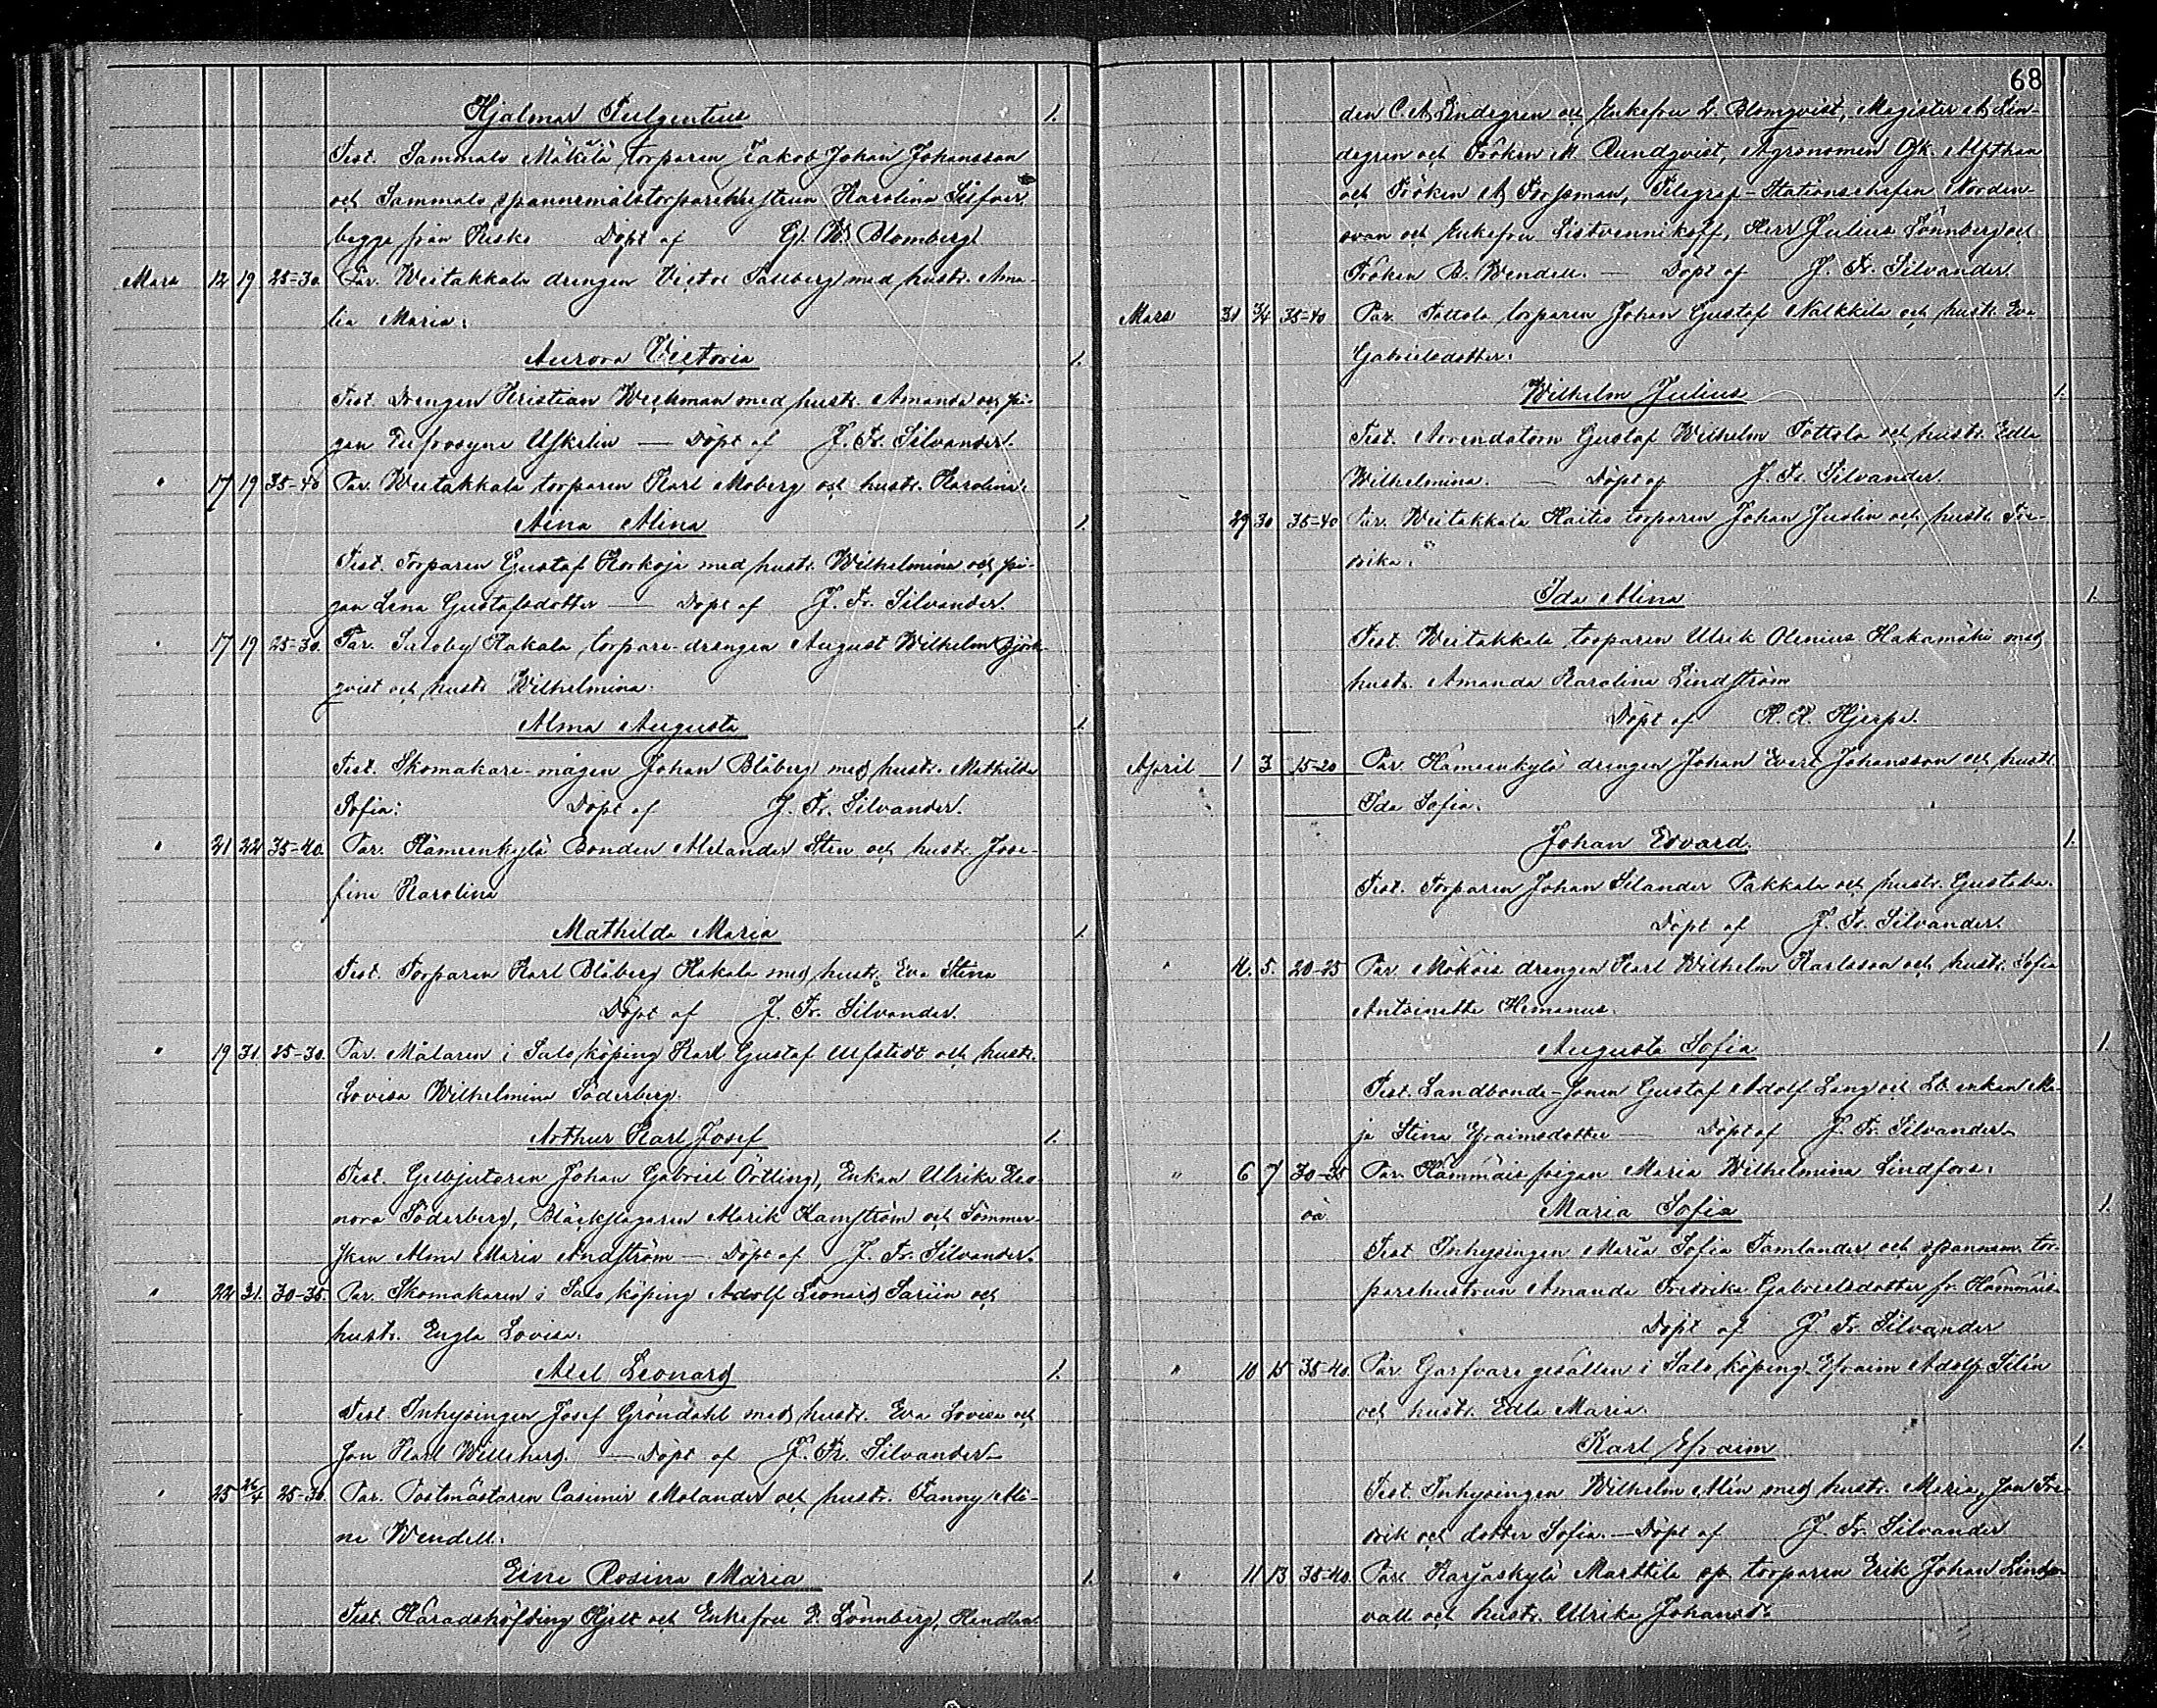 Hjalmar Fulgentius 1.
Test. Sammalo Mäkelä torparen Jakob Johan Johansson
och Sammalo spannemålstorparehustrun Karolina Silfver
begge från Kisko Döpt af G. W. Blomberg.
Mars 12 19 25-30. Par. Weitakkala drengen Victor Sallberg med hustr. Ama-
lia Maria.
Aurora Victoria 1.
Test. Drengen Kristian Weckman med hustr. Amanda och pi-
gan Eufrosyne Uskelin — Döpt af J. Fr. Silvander.
" 17 19 35-40 Par. Weitakkala torparen Karl Moberg och hustr. Karolina.
Aina Alina 1.
Test. Torparen Gustaf Korkoja med hustr. Wilhelmina och pi-
gan Lena Gustafsdotter — Döpt af J. Fr. Silvander.
" 17 19 25-30. Par. Saloby Kakala torpare-drengen August Wilhelm Björk-
qvist och hustr. Wilhelmina.
Alma Augusta 1.
Test. Skomakare-mågen Johan Blåberg med hustr. Mathilda
Sofia: Döpt af J. Fr. Silvander.
" 21 22 35-40. Par. Hämeenkylä Bonden Alexander Sten och hustr. Jose-
fina Karolina
Mathilda Maria 1.
Test. Torparen Karl Blåberg Kakala med hustr. Eva Stina
Döpt af J. Fr. Silvander.
" 19 31. 25-30. Par. Målaren i Salo köping Karl Gustaf Ulfstedt och hustr.
Lovisa Wilhelmina Söderberg.
Arthur Karl Josef 1.
Test. Gelbjutaren Johan Gabriel Örtling, Enkan Ulrika Eleo-
nora Söderberg, Bläckslagaren Marik Kamström och Sömmer-
skan Alma Maria Andström — Döpt af J. Fr. Silvander.
" 22 31. 30-35. Par. Skomakaren i Salo köping Adolf Leonard Sarin och
hustr. Engla Lovisa.
Axel Leonard 1.
Test. Inhysingen Josef Gröndahl med hustr. Eva Lovisa och
Son Karl Willehard. — Döpt af J. Fr. Silvander
" 25 26/4 25-30. Par. Postmästaren Casimir Molander och hustr. Fanny Ali-
ne Wendell.
Eine Rosina Maria 1.
Test. Häradshöfding Hjelt och Enkefru D. Lönnberg, Handlan-
68
den C. A. Lindegren och Enkefru L. Blomqvist, Magister A. Lin-
degren och Fröken M. Rundqvist, Agronomen Gk. Alfthan
och Fröken A. Forsman, Telegraf-Stationschefen Norden-
svan och Enkefru Listvennikoff, Herr Julius Lönnberg och
Fröken B. Wendell. — Döpt af J. Fr. Silvander.
Mars 31 3/4 35-40 Par. Tottola torparen Johan Gustaf Nalkkila och hustr. Eva
Gabrielsdotter.
Wilhelm Julius 1.
Test. Arrendatorn Gustaf Wilhelm Tottola och hustr. Edla
Wilhelmina. — Döpt af J. Fr. Silvander.
29 30 35-40 Par. Weitakkala Kaitio torparen Johan Juslin och hustr. Fre-
drika.
Ida Alina 1.
Test. Weitakkala torparen Ulrik Olenius Hakamäki med
hustr. Amanda Karolina Lindström
Döpt af K. K. Hjerpe.
April 1 3 15-20 Par. Hämeenkylä drengen Johan Evert Johansson och hustr.
Ida Sofia.
Johan Edvard. 1.
Test. Torparen Johan Silander Pakkala och hustr. Gustava.
Döpt af J. Fr. Silvander.
" 4. 5. 20-25 Par. Mökois drengen Karl Wilhelm Karlsson och hustr. Sofia
Antoinette Hemanus.
Augusta Sofia 1.
Test. Landbonde-sonen Gustaf Adolf Lang och Lb. enkan Ma-
ja Stina Efraimsdotter — Döpt af J. Fr. Silvander
" 6 7 30-35 Par. Hämmäis pigan Maria Wilhelmina Lindfors.
oä Maria Sofia 1.
Test Inhysingen Maria Sofia Tamlander och spannm. tor-
parehustrun Amanda Fredrika Gabrielsdotter fr. Hämmäis.
Döpt af J. Fr. Silvander
" 10 15 35-40. Par. Garfvaregesällen i Salo köping Efraim Adolf Silén
och hustr. Edla Maria.
Karl Efraim 1.
Test. Inhysingen Wilhelm Alén med hustr. Maria, Son Fre-
drik och dotter Sofia. — Döpt af J. Fr. Silvander
" 11 13 35-40. Par. Karjaskylä Marttila sp. torparen Erik Johan Lind-
vall och hustr. Ulrika Johansdr.